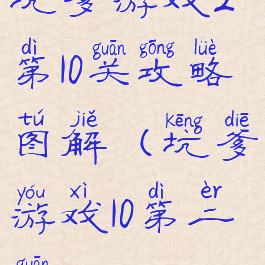 坑爹游戏2
dì guān gōng lüè
第10关攻略
tú jiě kēng diē
图解(坑爹
yóu xì dì èr
游戏10第二
guān